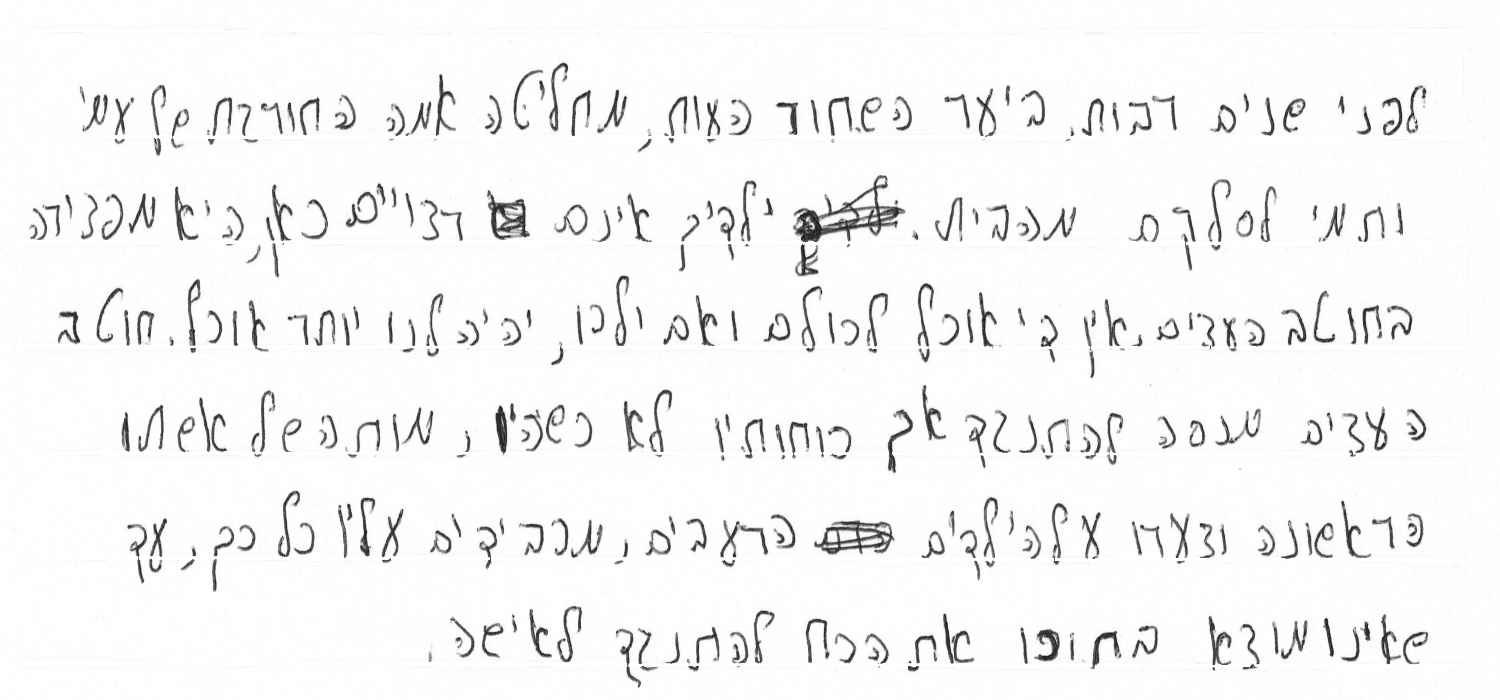 לפני שנים רבות, ביער השחור העות, מחליטה אמה החורגת של עמי
ותמי לסלקם מהבית. ילדיך אינם רצויים כאן, היא מפצירה
בחוטב העצים. אין די אוכל לכולם ואם ילכו, יהיה לנו יותר אוכל. חוטב
העצים מנסה להתנגד אך כוחותיו לא כשהיו, מותה של אשתו
הראשונה וצערו על הילדים הרעבים, מכבידים עליו כל כך, עד
שאינו מוצא בתוכו את הכח להתנגד לאישה.